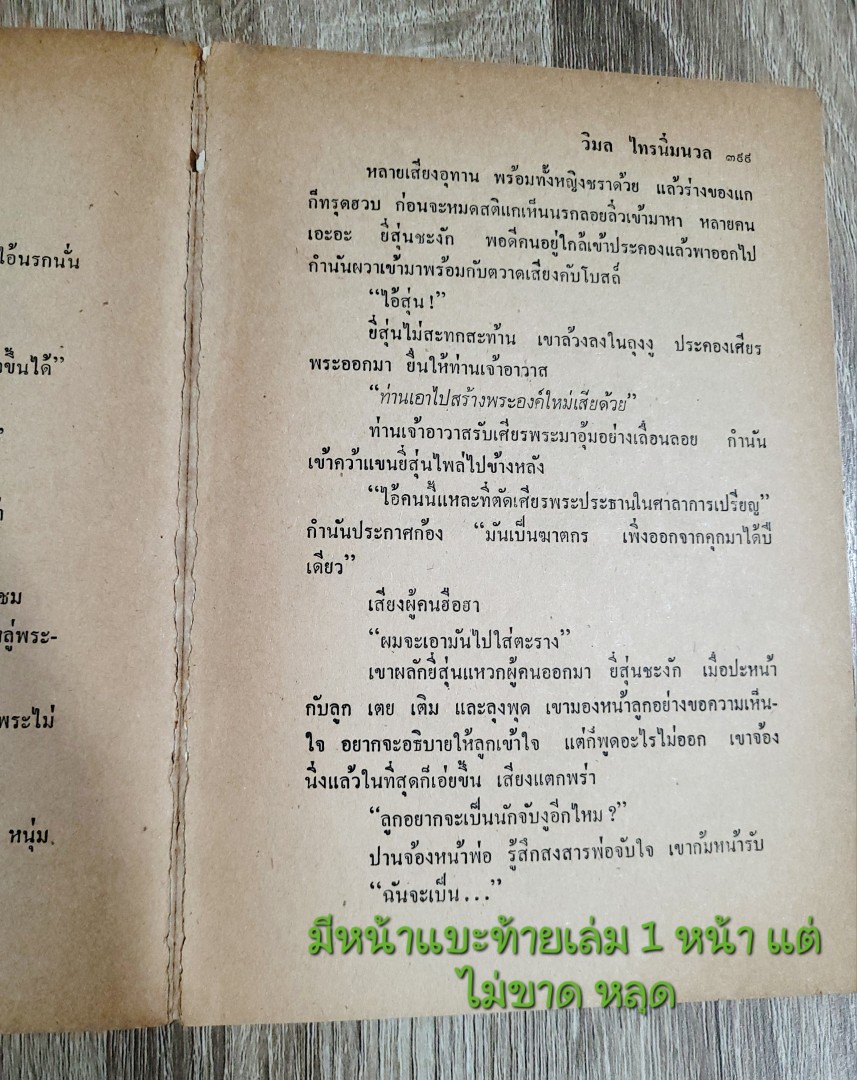 ไอ้นรกนั่น
ขึ้นได้”
”
ชม
ลู่พระ-
พระไม่
หนุ่ม
วิมล ไทรนิ่มนวล ๓๙๙
หลายเสียงอุทาน พร้อมทั้งหญิงชราด้วย แล้วร่างของแก
ก็ทรุดฮวบ ก่อนจะหมดสติแกเห็นนรกลอยลิ่วเข้ามาหา หลายคน
เอะอะ ยี่สุ่นชะงัก พอดีคนอยู่ใกล้เข้าประคองแล้วพาออกไป
กำนันผวาเข้ามาพร้อมกับตวาดเสียงคับโบสถ์
“ไอ้สุ่น !”
ยี่สุ่นไม่สะทกสะท้าน เขาล้วงลงในถุงงู ประคองเศียร
พระออกมา ยื่นให้ท่านเจ้าอาวาส
“ท่านเอาไปสร้างพระองค์ใหม่เสียด้วย”
ท่านเจ้าอาวาสรับเศียรพระมาอุ้มอย่างเลื่อนลอย กำนัน
เข้าคว้าแขนยี่สุ่นไพล่ไปข้างหลัง
“ไอ้คนนี้แหละที่ตัดเศียรพระประธานในศาลาการเปรียญ”
กำนันประกาศก้อง “มันเป็นฆาตกร เพิ่งออกจากคุกมาได้ปี
เดียว”
เสียงผู้คนฮือฮา
“ผมจะเอามันไปใส่ตะราง”
เขาผลักยี่สุ่นแหวกผู้คนออกมา ยี่สุ่นชะงัก เมื่อปะหน้า
กับลูก เตย เติม และลุงพุด เขามองหน้าลูกอย่างขอความเห็น-
ใจ อยากจะอธิบายให้ลูกเข้าใจ แต่ก็พูดอะไรไม่ออก เขาจ้อง
นิ่งแล้วในที่สุดก็เอ่ยขึ้น เสียงแตกพร่า
“ลูกอยากจะเป็นนักจับงูอีกไหม ?”
ปานจ้องหน้าพ่อ รู้สึกสงสารพ่อจับใจ เขาก้มหน้ารับ
“ฉันจะเป็น...”
มีหน้าแบะท้ายเล่ม 1 หน้า แต่
ไม่ขาด หลุด